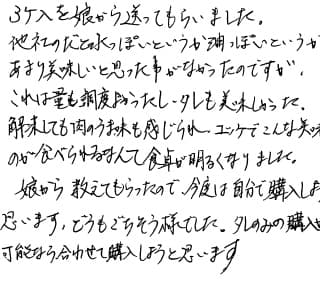 3ケ入を娘から送ってもらいました。
他社のだと水っぽいというか油っぽいというか
あまり美味しいと思った事がなかったのですが、
これは量も調度良かったし、タレも美味しかった。
解凍しても肉のうま味も感じられ、エッケでこんな美味
のが食べられるなんて食卓が明るくなりました。
娘から教えてもらったので、今度は自分で購入しよ
思います。どうもごちそう様でした。タレのみの購入も
可能なら合わせて購入しようと思います